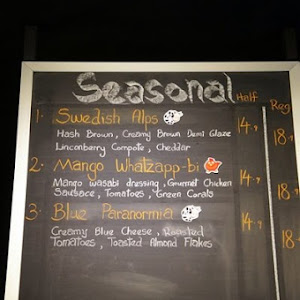 Seasonal Half Reg
1. Swedish Alps 14.9 18.9
Hash Brown, Creamy Brown Demi Glaze
Linconberry Compote, Cheddar
2. Mango Whatzapp-bi 14.9 18.
Mango wasabi dressing, Gourmet Chicken
Sausage, Tomatoes, Green Corals
3. Blue Paranormia 14.9 18.
Creamy Blue Cheese, Roasted
Tomatoes, Toasted Almond Flakes